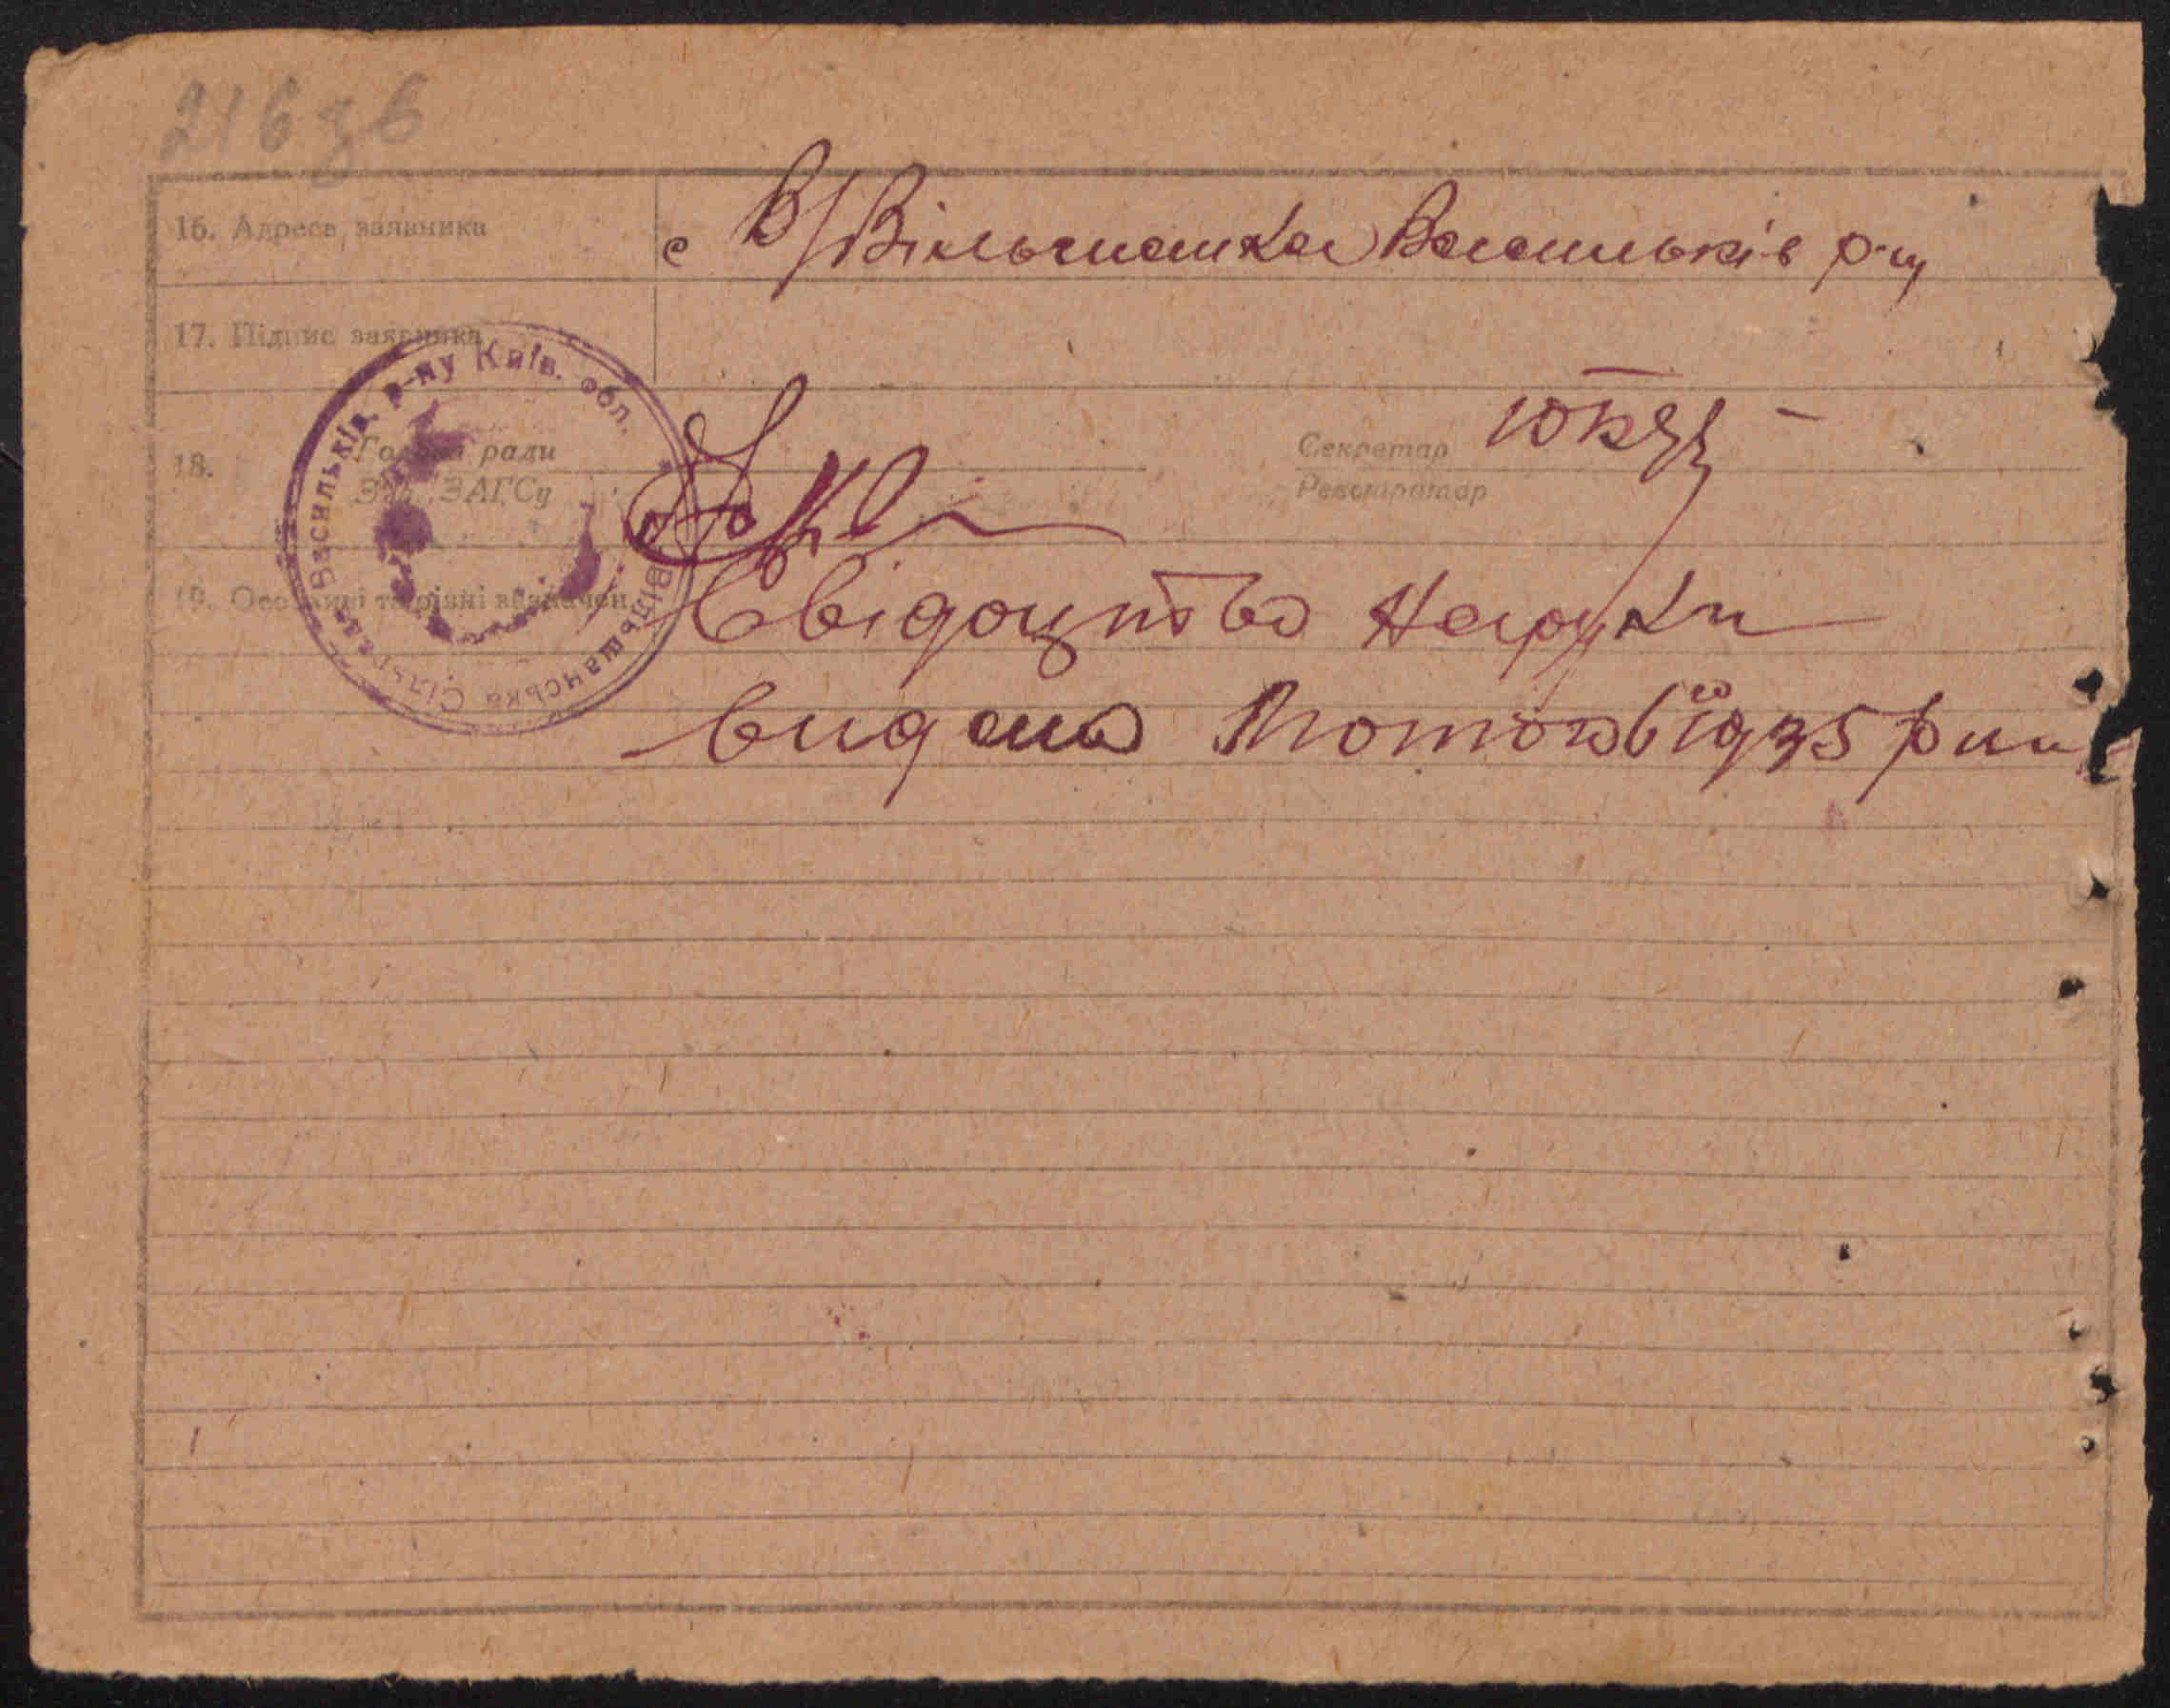 216зв
16. Адреса заявника
с В/Вільшанка Васильків р-ну
17. Підпис заявника
Васильків. р-ну Київ. обл.
Вільшанська Сільрада
18.
Голова ради
Зав. ЗАГСу
Секретар
Реєстратор
19. Особливі та різні зазначен.
Свідоцтво На руки
видано